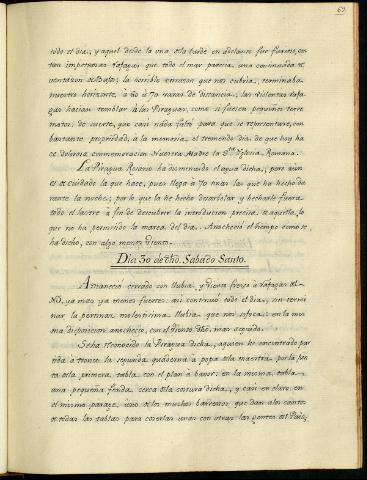 69.
todo el dia, y aquel desde la una de la tarde en adelante fue furioso, en
tan impetuosas rafagas que todo el mar parecia una continuada
ventazon la horrible cerrazon que nos cubria, terminaba
nuestro horizonte, á 60 à 70 varas de distancia, las violentas rafa
gas hacian temblar à las Piraguas, como si fuesen pequeños terre
motos, de suerte, que casi nada faltó para que se representase, con
bastante propriedad, à la memoria, el tremendo dia de que hoy ha
ce dolorosa commemoracion Nuestra Madre la Sta. Yglesia Romana.
La Piragua Rosario ha disminuido el agua dicha; pero aùn
es de cuidado la que hace, pues llega à 70 las que ha hecho du
rante la noche; por lo que la he hecho desarbolar y hecharle fuera
todo el lastre à fin de descubrir la introduccion precisa de aquella, lo
que no ha permitido la marea del dia. Anochecio el tiempo como se
ha dicho, con algo menos viento.
Dia 30 de dho. Sabado Santo.
Amaneciò cerrado con lluvia, y viento fresco à rafagas al
NO, ya mas ya menos fuertes: asi continuò todo el dia, sin termi
nar la pertinaz molestisima lluvia que nos sofoca: en la mis
ma disposicion anochecio, con el viento dho, mas seguido.
Se ha reconocido la Piragua dicha, à quien se ha encontrado par
tida à tronco la segunda quaderna à popa de la maestra por la jun
ta de la primera tabla con el plan à babor: en la misma tabla
una pequeña fenda cerca de la costura dicha, y casi en claro: en
el mismo parage, uno de los muchos barrenos que dan à los cantos
de todas las tablas para coserlas unas con otras las gentes del Pais,